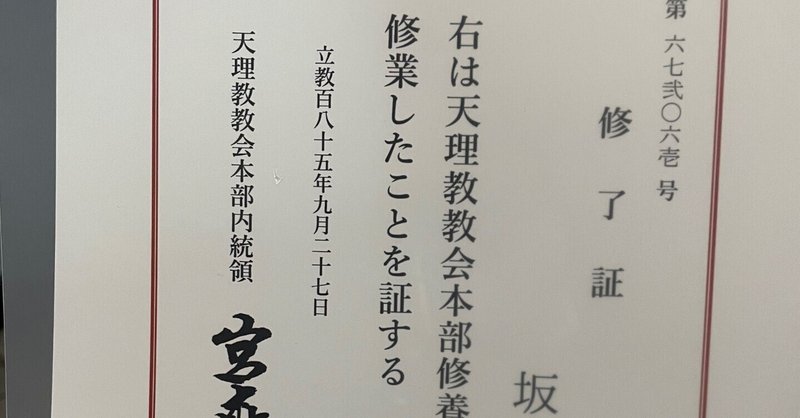 第六七弐〇六壱号
修了証
坂
右は天理教教会本部修養
修業したことを証する
立教百八十五年九月二十七日
天理教教会本部内統領
宮